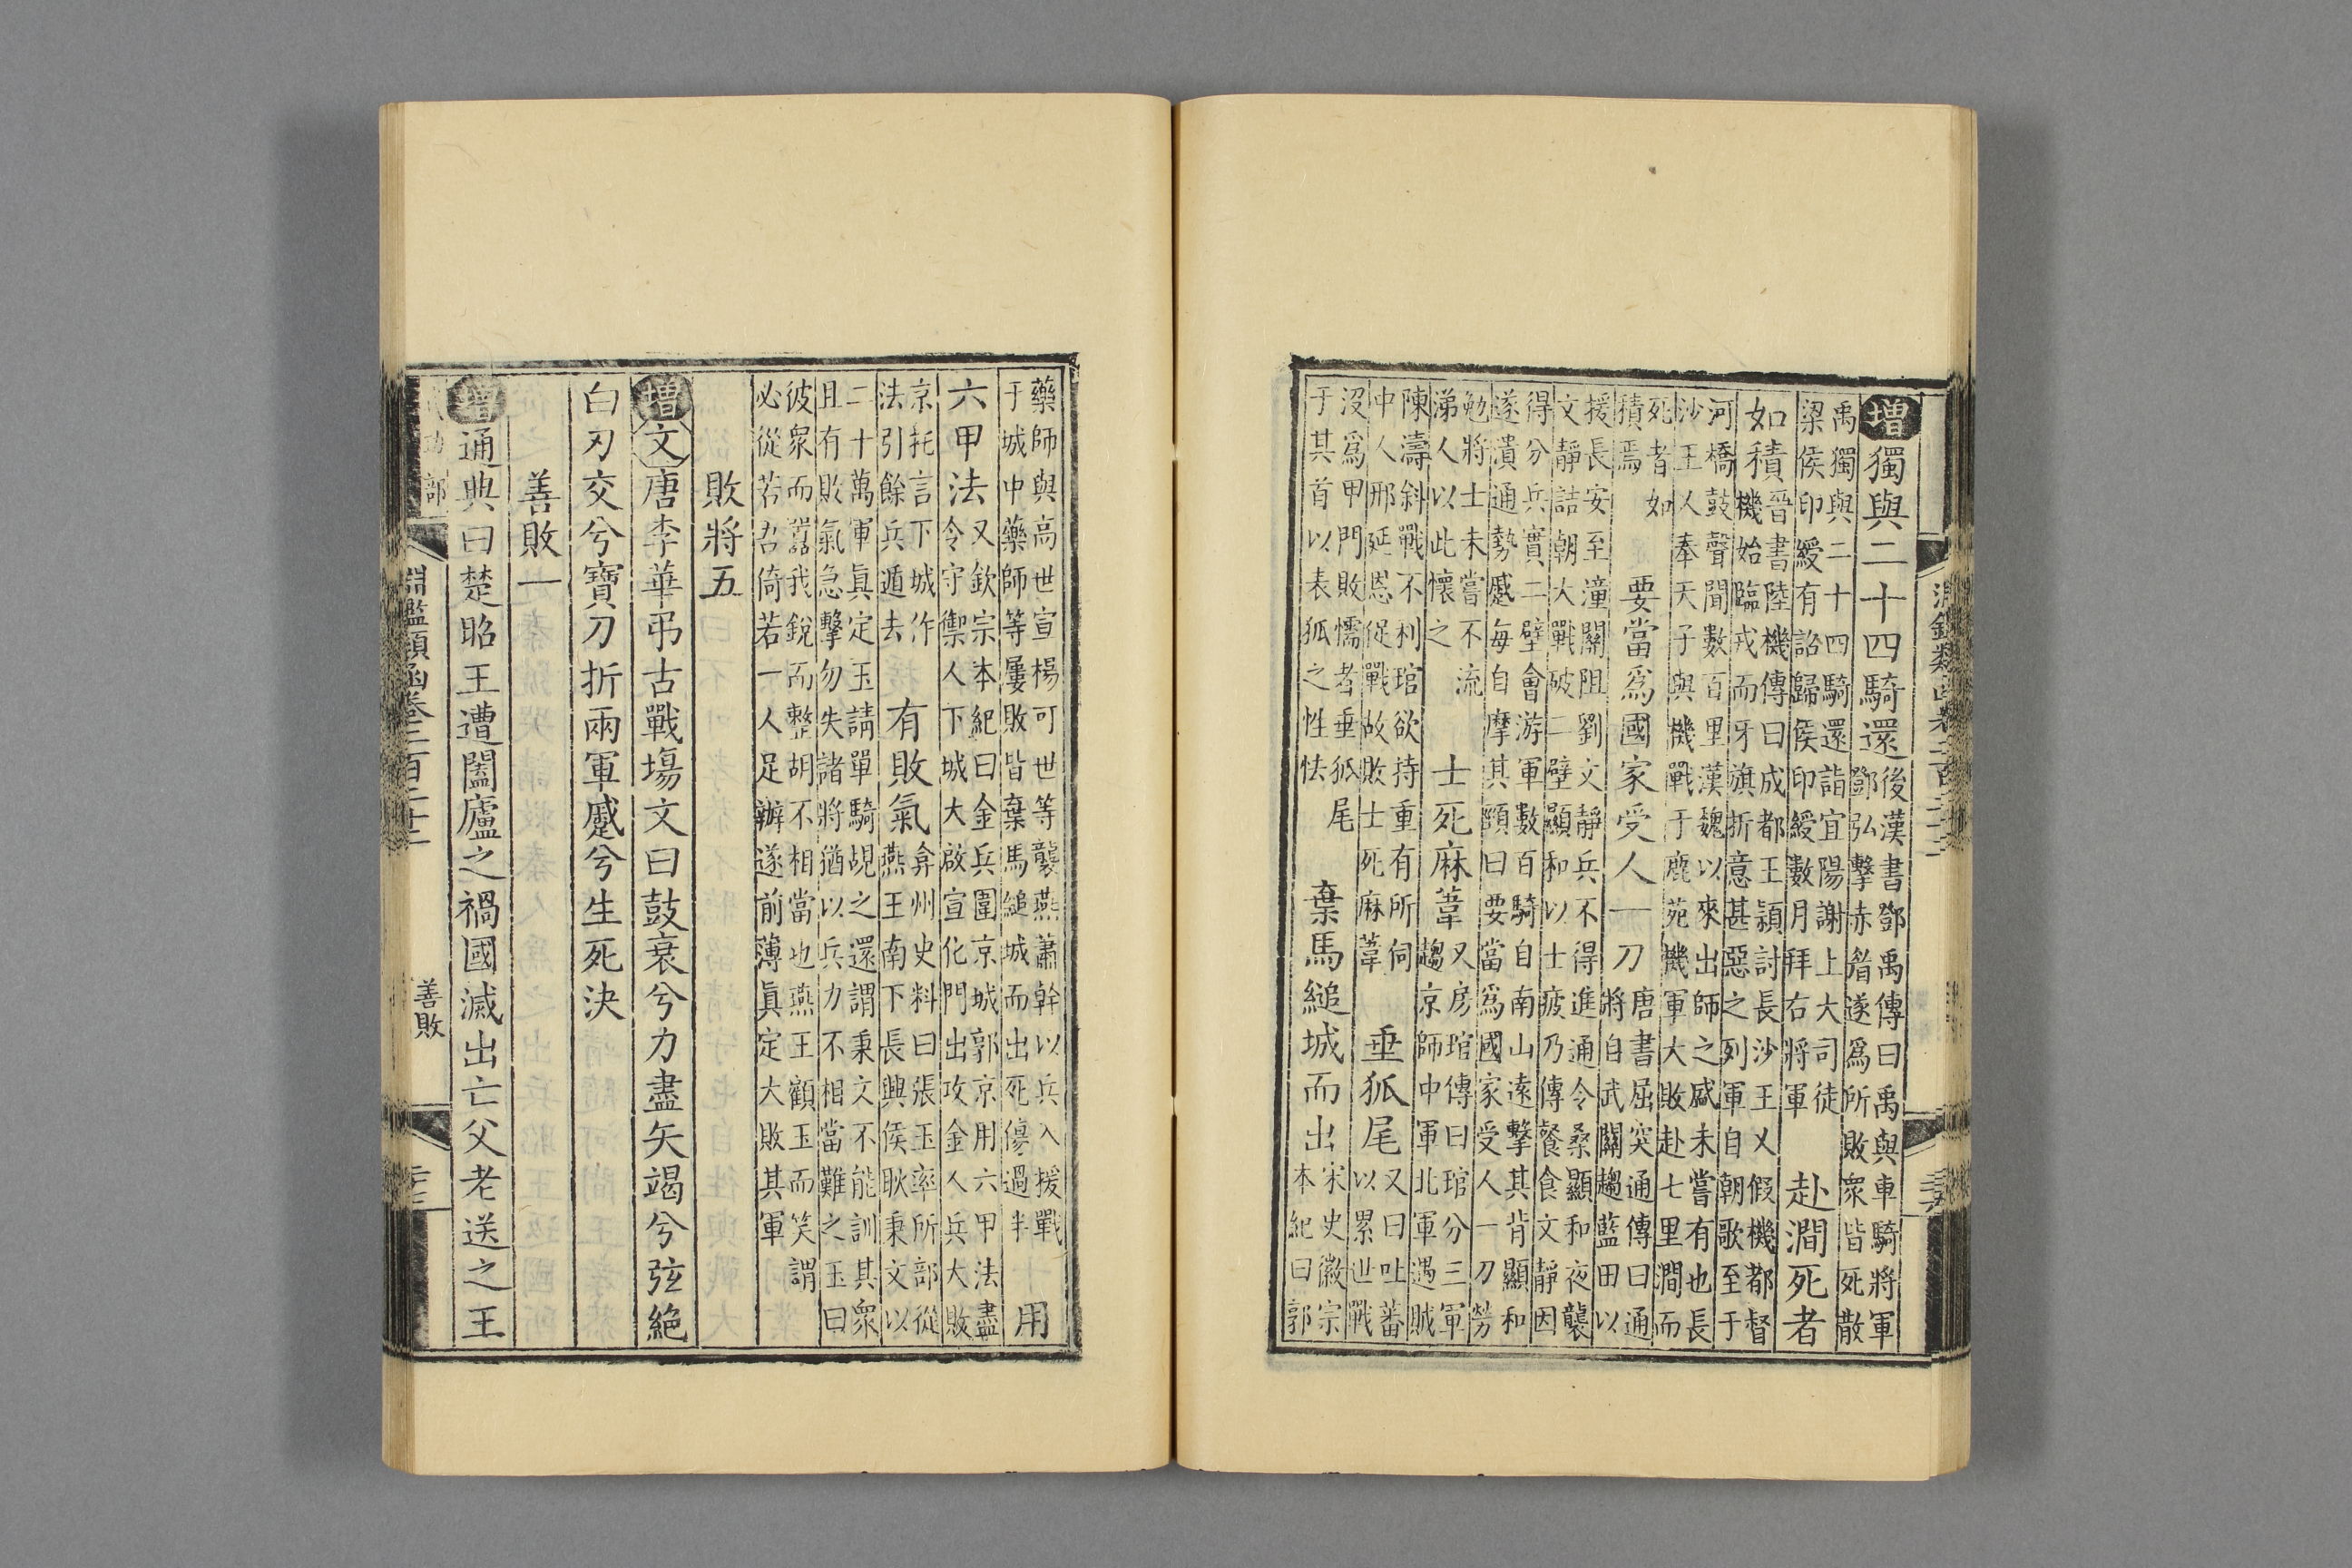 淵鑑類函卷二百二十二
增獨與二十四騎還後漢書鄧禹傳曰禹與車騎將軍
鄧弘擊赤眉遂爲所敗衆皆死散
禹獨與二十四騎還詣宜陽謝上大司徒
梁侯印綬有詔歸侯印綬數月拜右將軍
赴澗死者
如積晉書陸機傳曰成都王穎討長沙王乂假機都督
機始臨戎而牙旗折意甚惡之列軍自朝歌至于
河橋鼓聲聞數百里漢魏以來出師之盛未嘗有也長
沙王人奉天子與機戰于鹿苑機軍大敗赴七里澗而
死者如
積焉
要當爲國家受人一刀唐書屈突通傳曰通
將自武關趨藍田以
援長安至潼關阻劉文靜兵不得進通令桑顯和夜襲
文靜詰朝大戰破二壁顯和以士疲乃傳餐食文靜因
得分兵實二壁會游軍數百騎自南山遠擊其背顯和
遂潰通勢蹙每自摩其頸曰要當爲國家受人一刀勞
勉將士未嘗不流
涕人以此懷之
士死麻葦又房琯傳曰琯分三軍
趨京師中軍北軍遇賊
陳濤斜戰不利琯欲持重有所伺
中人邢延恩促戰故敗士死麻葦
垂狐尾又曰吐蕃
以累世戰
沒爲甲門敗懦者垂狐尾
于其首以表狐之性怯
棄馬縋城而出宋史徽宗
本紀曰郭
藥師與高世宣楊可世等襲燕蕭幹以兵入援戰
于城中藥師等屢敗皆棄馬縋城而出死傷過半
用
六甲法又欽宗本紀曰金兵圍京城郭京用六甲法盡
令守禦人下城大啟宣化門出攻金人兵大敗
京托言下城作
法引餘兵遁去
有敗氣弇州史料曰張玉率所部從
燕王南下長興侯耿秉文以
二十萬軍眞定玉請單騎覘之還謂秉文不能訓其衆
且有敗氣急擊勿失諸將猶以兵力不相當難之玉曰
彼衆而囂我銳而整胡不相當也燕王顧玉而笑謂
必從若召倚若一人足辦遂前薄眞定大敗其軍
敗將五
增文唐李華弔古戰場文曰鼓衰兮力盡矢竭兮弦絕
白刃交兮寶刀折兩軍蹙兮生死決
善敗一
增通典曰楚昭王遭闔廬之禍國滅出亡父老送之王
淵鑑類函卷二百二十二
善敗